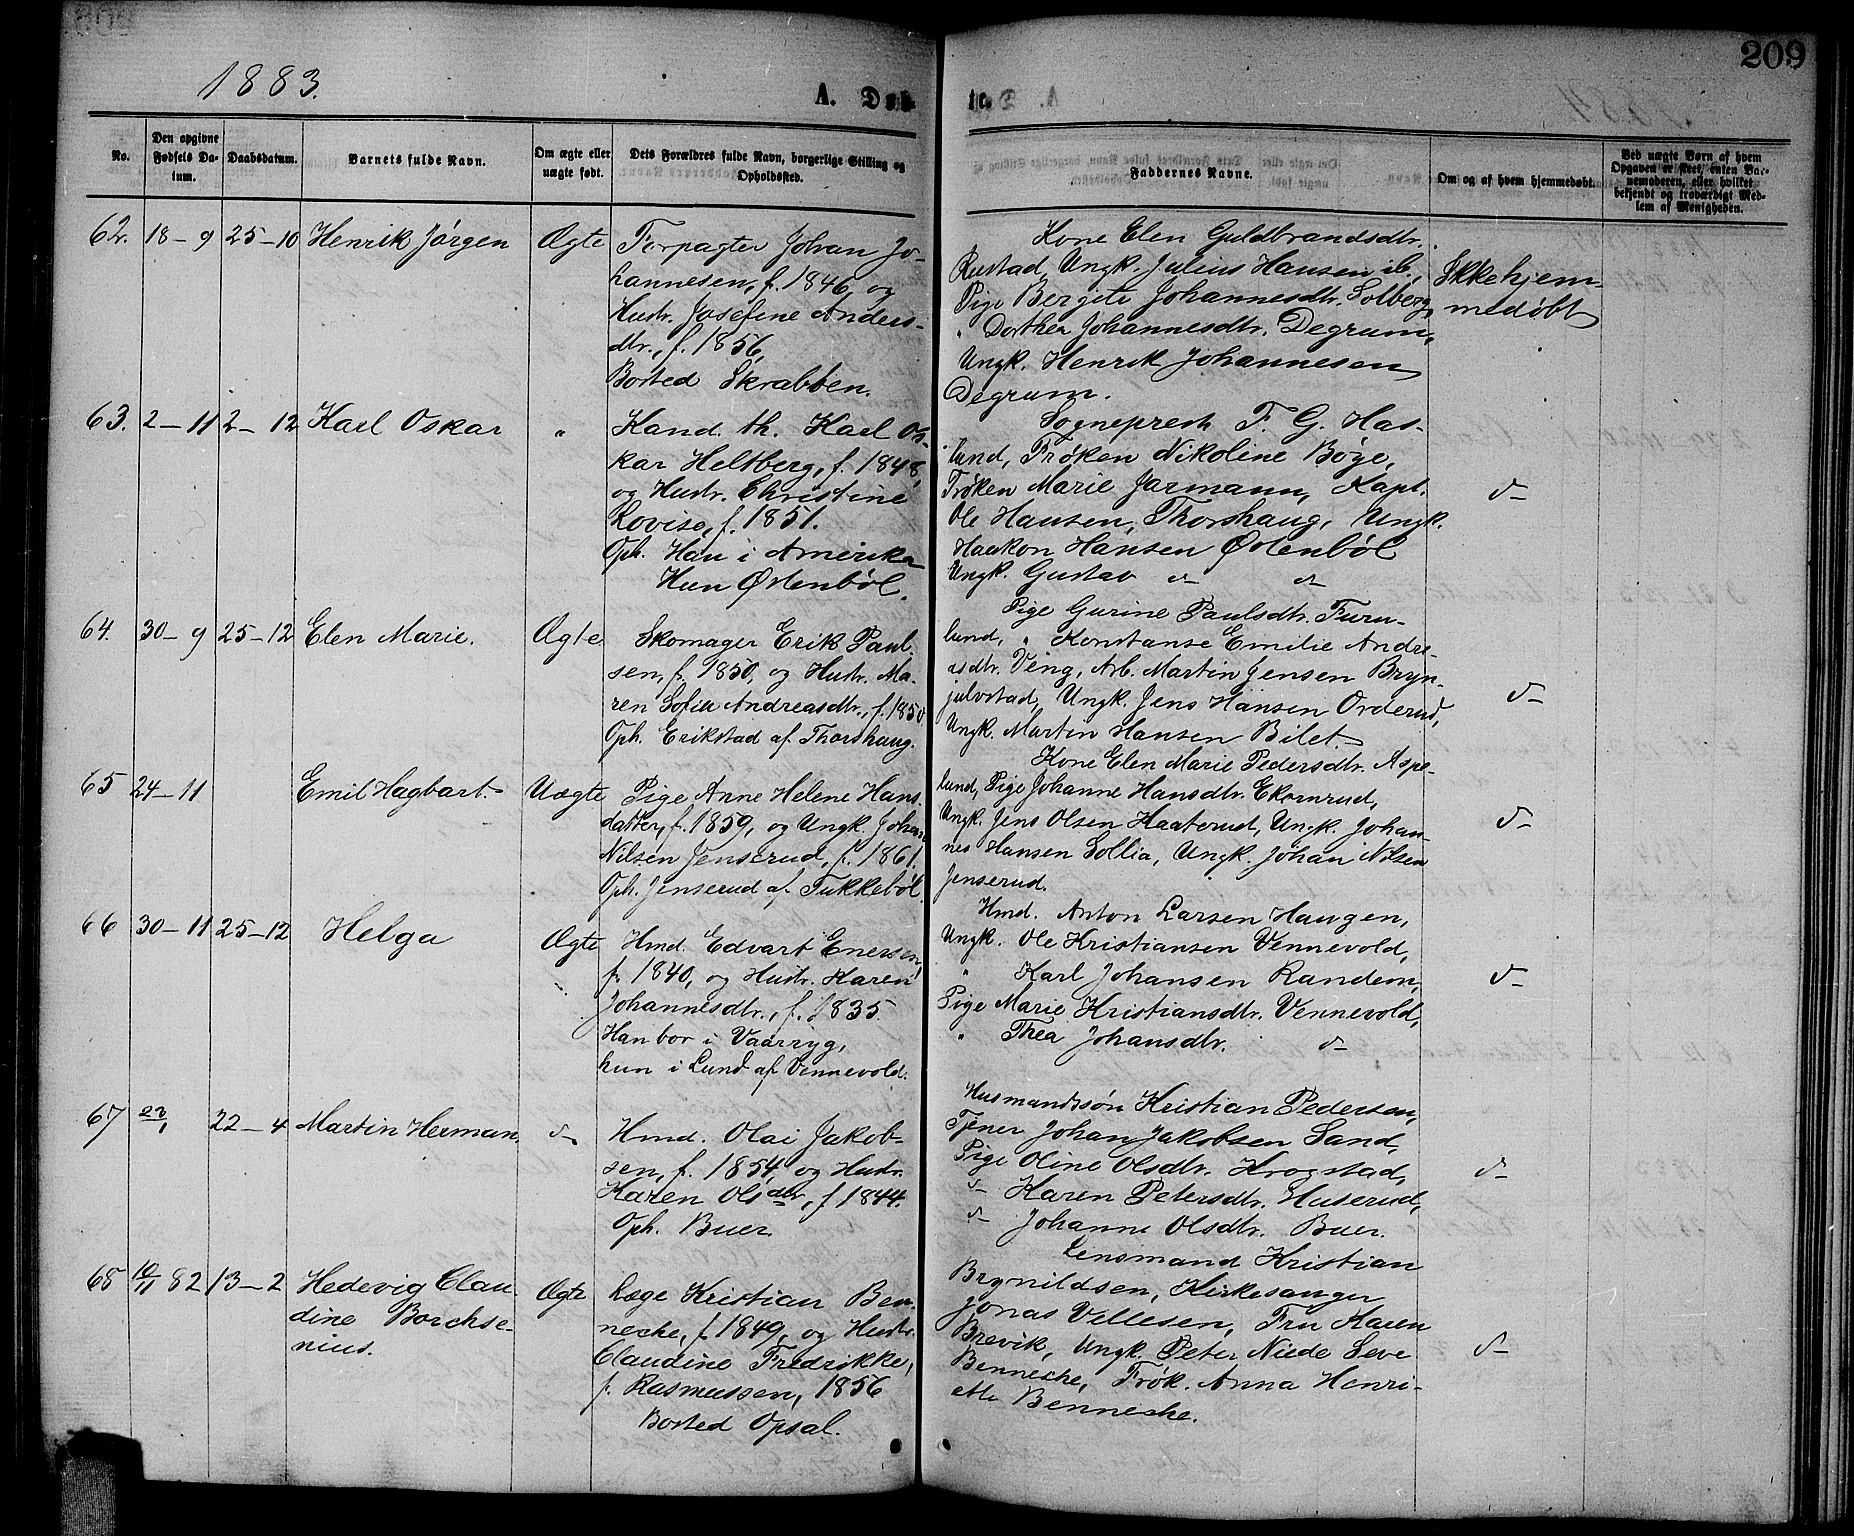 1883.
A. Døbte.
209
No.
Den opgivne Fødsels Datum.
Daabsdatum.
Barnets fulde Navn.
Om ægte eller uægte født.
Dets Forældres fulde Navn, borgerlige Stilling og Opholdssted.
Faddernes Navne.
Om og af hvem hjemmedøbt.
Ved uægte Børn af hvem Opgaven er skeet, enten Barnemoderen, eller hvilket bekjendt og troværdigt Medlem af Menigheden.
62. 18-9 25-10 Henrik Jørgen Ægte
Forpagter Johan Jo-
hannesen, f. 1846, og
Hustr. Josefine Anders-
dtr., f. 1856,
Bosted Skrabben.
Kone Elen Guldbrandsdtr.
Rustad, Ungk. Julius Hansen ib.,
Pige Bergite Johannesdtr. Solberg,
" Dorthea Johannesdtr. Degrum,
Ungk. Henrik Johannesen
Degrum.
Ikke hjem-
medøbt
63. 2-11 2-12 Karl Oskar "
Kand. th. Karl Os-
kar Heltberg, f. 1848,
og Hustr. Christine
Lovise, f. 1851.
Oph. Han i Amerika
Hun Østenbøl.
Sogneprest F. G. Has-
lund, Frøken Nikoline Bøye,
Frøken Marie Jarmann, Kapt.
Ole Hansen, Thorshaug, Ungk.
Haakon Hansen Østenbøl
Ungk. Gustav d- d-
d-
64. 30-9 25-12 Elen Marie. Ægte
Skomager Erik Paul-
sen, f. 1850, og Hustr. Ma-
ren Sofie Andreasdtr., f. 1850
Oph. Erikstad af Thorshaug.
Pige Gurine Paulsdtr. Furu-
lund, " Konstanse Emilie Andre-
asdtr. Veng, Arb. Martin Jensen Bryn-
julvstad, Ungk. Jens Hansen Orderud,
Ungk. Martin Hansen Bilet.
d-
65 24-11 Emil Hagbart. Uægte
Pige Anne Helene Hans-
datter, f. 1859, og Ungk. Johan
Nilsen Jenserud, f. 1861.
Oph. Jenserud af Tukkebøl.
Kone Elen Marie Pedersdtr. Aspe-
lund, Pige Johanne Hansdtr. Ekornrud,
Ungk. Jens Olsen Haaterud, Ungk. Johan-
nes Hansen Sollia, Ungk. Johan Nilsen
Jenserud.
d-
66 30-11 25-12 Helga Ægte
Hmd. Edvart Enersen,
f. 1840, og Hustr. Karen
Johannesdtr., f. 1835.
Han bor i Vaarryg,
hun i Lund af Vennevold.
Hmd. Anton Larsen Haugen,
Ungk. Ole Kristiansen Vennevold,
" Karl Johansen Randem,
Pige Marie Kristiansdtr. Vennevold,
" Thea Johansdtr. d-
d-
67 22-4 Martin Herman. d-
Hmd. Olai Jakob-
sen, f. 1854, og Hustr.
Karen Olsdtr, f. 1844.
Oph. Buer.
Husmandssøn Kristian Pedersen,
Tjener Johan Jakobsen Sand,
Pige Oline Olsdtr. Krogstad,
d- Karen Petersdtr. Huserud,
d- Johanne Olsdtr. Buer.
d-
68 10/11 82 13-2 Hedevig Clau-
dine Borchse-
nius.
Ægte
Læge Kristian Ben-
neche, f. 1849, og Hustr.
Claudine Fredrikke,
f. Rasmussen, 1856
Bosted Opsal.
Lensmand Kristian
Brynildsen, Kirkesanger
Jonas Vellesen, Fru Karen
Brevik, Ungk. Peter Seve
Benneche, Frøk. Anna Henri-
ette Benneche.
d-